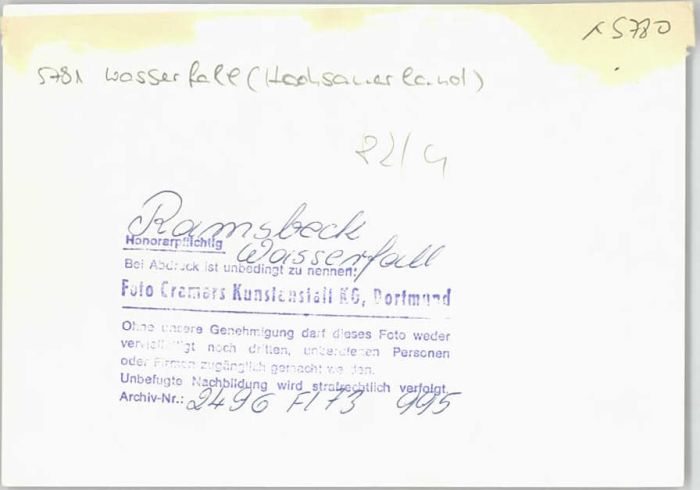 x 5780
5781 Wasserfall (Hochsauerland)
82/4
Ramsbeck
Honorarpflichtig Wasserfall
Bei Abdruck ist unbedingt zu nennen:
Foto Cramers Kunstanstalt KG, Dortmund
Ohne unsere Genehmigung darf dieses Foto weder
vervielfältigt noch dritten, unberufenen Personen
oder Firmen zugänglich gemacht werden.
Unbefugte Nachbildung wird strafrechtlich verfolgt.
Archiv-Nr.: 2496 F173 995